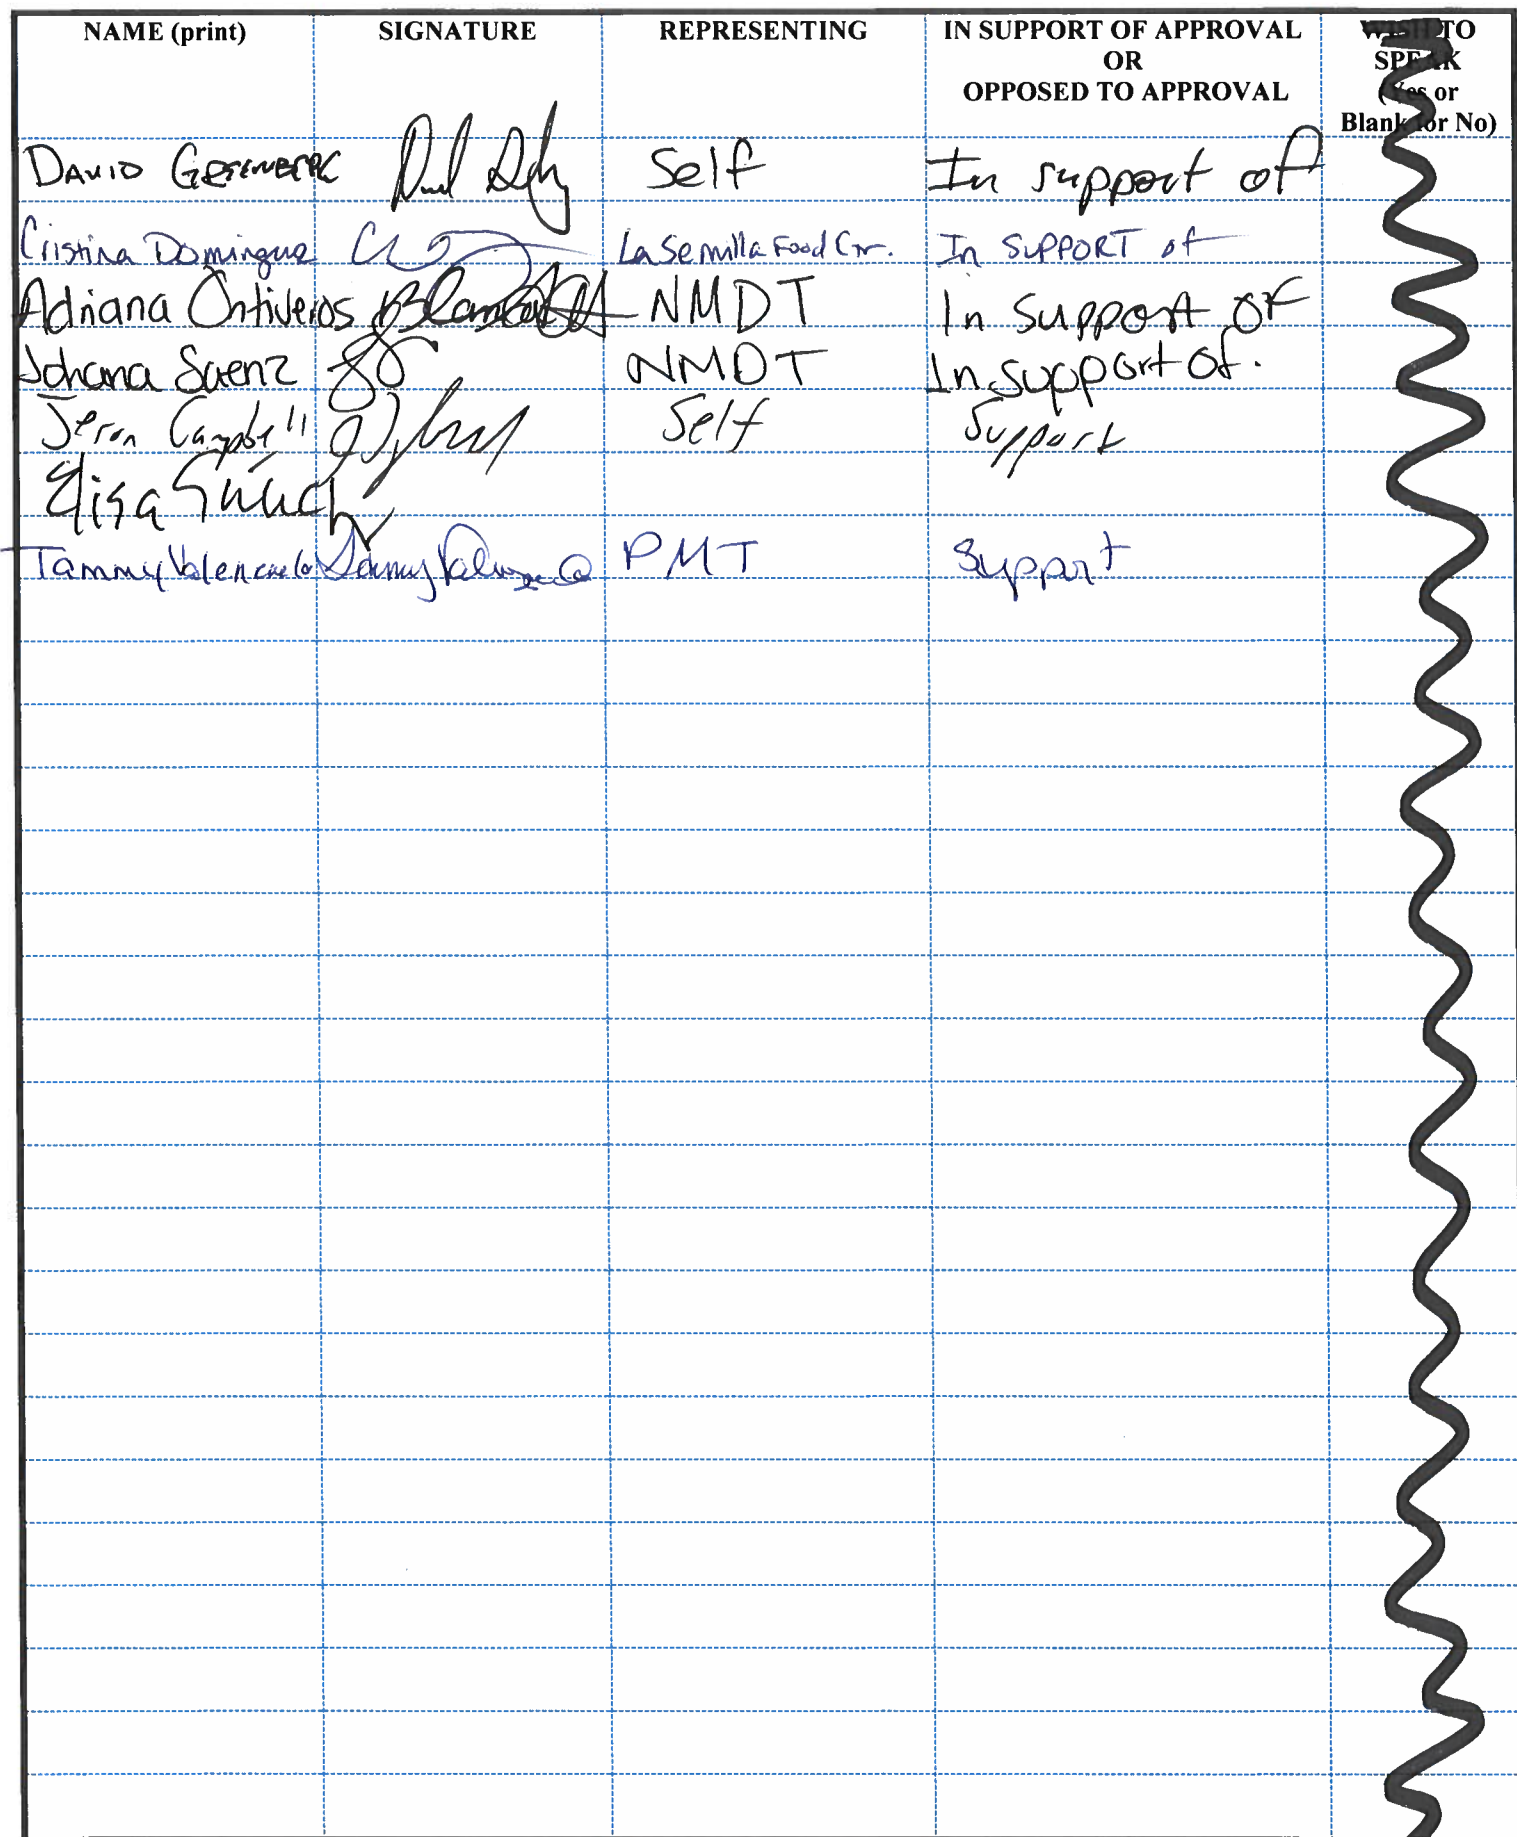 NAME (print) SIGNATURE REPRESENTING IN SUPPORT OF APPROVAL WISH TO
OR SPEAK
OPPOSED TO APPROVAL (Yes or
Blank for No)
DAVID GREENBERG Self In support of
Cristina Dominguez La Semilla Food Ctr. In SUPPORT of
Adriana Ontiveros NMDT In support of
Johana Saenz NMDT In support of.
Jeron Campbell Self Support
Elisa
Tammy Valenzuela PMT Support